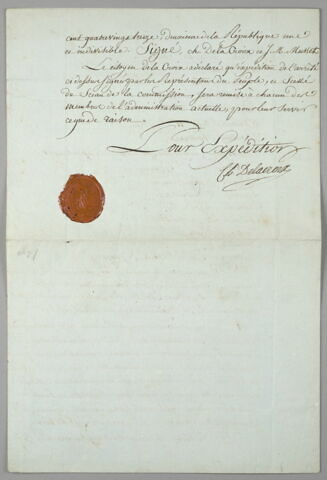 cent quatre vingt treize Deuxieme de la Republique une
et indivisible Signé, ch. De la Croix et J. M. Musset
Le citoyen de la Croix a declaré qu'expedition de l'arrêté
ci dessus signée par les Représentans du Peuple, et Scellé
du Sceau de la Commission, sera remise à chacun des
membres de l'administration actuelle, pour leur servir
ce que de raison.
Pour Expédition
Ch. Delacroix